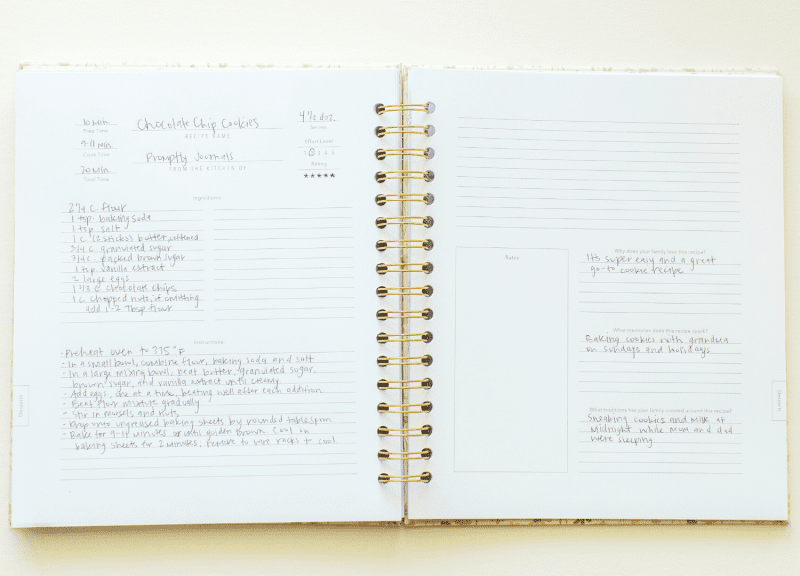 10 min
Prep Time
Chocolate Chip Cookies
RECIPE NAME
4 1/2 doz.
Serves
9-11 min
Cook Time
Effort Level
Promptly Journals
FROM THE KITCHEN OF
Rating
★★★★★
20 min
Total Time
Ingredients
2 1/4 C. flour
1 tsp. baking soda
1 tsp. salt
1 C. (2 sticks) butter, softened
3/4 C. granulated sugar
3/4 C. packed brown sugar
1 tsp vanilla extract
2 large eggs
chocolate chips
1 C. chopped nuts, if omitting
add 1-2 Tbsp flour
Instructions
- Preheat oven to 375°F
- In a small bowl, combine flour, baking soda and salt
- In a large mixing bowl, beat butter, granulated sugar,
brown sugar, and vanilla extract until creamy
- Add eggs, one at a time, beating well after each addition
- Beat flour mixture gradually
- Stir in morsels and nuts.
- Drop onto ungreased baking sheets by rounded tablespoon
- Bake for 9-11 minutes or until golden brown. Cool on
baking sheets for 2 minutes, remove to wire racks to cool
Desserts
Notes
Why does your family love this recipe?
It's super easy and a great
go-to cookie recipe
What memories does this recipe spark?
Baking cookies with grandma
on sundays and holidays
What traditions has your family created around this recipe?
Sneaking cookies and milk at
midnight while mom and dad
were sleeping
Desserts